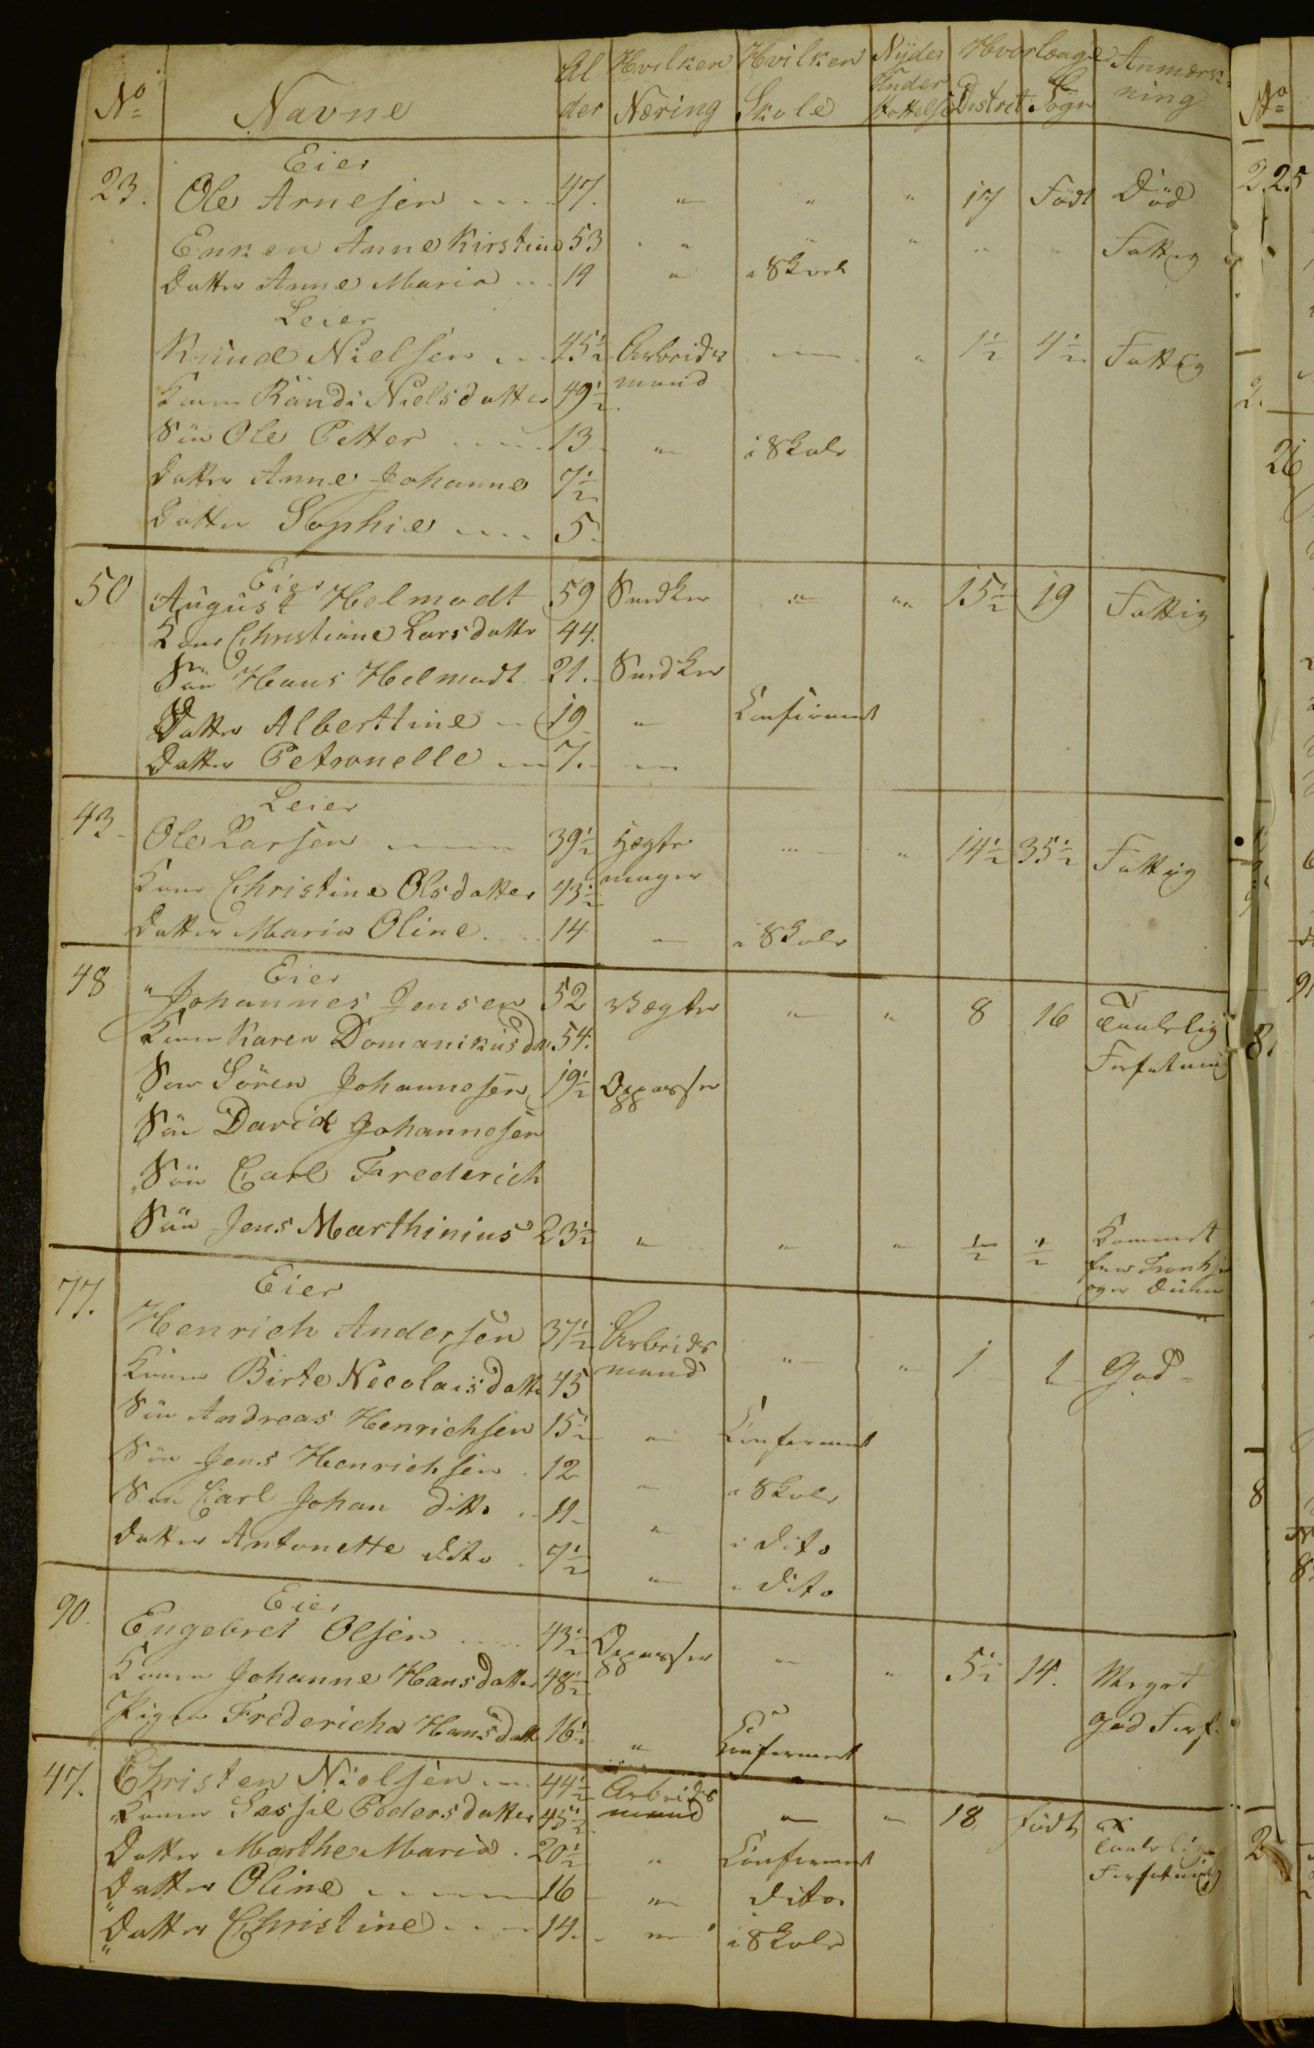 No Navne Alder Hvilken Næring Hvilken Skole Nyder Understøttelse Hvorlænge i Distret Sogn Anmærkning
Eier
23. Ole Arnesen .... 47. " " " 17 Født Död
Enken Anne Kirstine 53 " " " " " Fattig
Datter Anne Maria ... 14 " i Skole
Leier
Knud Nielsen ... 45½ Arbeids " 1½ 4½ Fattig
Kone Randi Nielsdatter 49½ mand
Sön Ole Petter ..... 13 " i Skole
Datter Anne Johanne 7½
Datter Sophie .... 5.
Eier
50 August Helmodt 59 Snedker " "" 15½ 19 Fattig
Kone Christiane Larsdatter 44.
Sön Hans Helmodt 21. Snedker
Datter Alberttine .. 19 " Confirmert
Datter Petronelle ... 7. "
Leier
43 Ole Larsen ....... 39½ Hægte " 14½ 35½ Fattig
Kone Christine Olsdatter 43½ mager
Datter Maria Oline .... 14 " i Skole
Eier
48 " Johannes Jensen 52 Vægter " " 8 16 Taalelig
Kone Karen Domanikusda 54. Forfatning
Sön Sören Johannesen 19½ Oppasser
Sön David Johannesen
Sön Carl Frederich
Sön Jens Marthinius 23½ " " " ½ ½ Kommet
Eier
77. Henrich Andersen 37½ Arbeids " " 1 1 God
Kone Birte Necolaisdatter 45 mand
Sön Andreas Henrichsen 15½ " Confirmert
Sön Jens Henrichsen . 12 " i Skole
Sön Carl Johan ditto .. 11 " i dito
Datter Antonette dito . 7½ " i dito
Eier
90. Engebret Olsen ..... 43½ Oppasser " " 5½ 14. Meget
Kone Johanne Hansdatter 48½ god Forf.
Pigen Fredericha Hansdatt 16½ " Confirmert
47. Christen Nielsen ... 44½ Arbeids " " 18 födt Taalelig
Kone Sessel Pedersdatter 45½ mand Forfatning
Datter Marthe Maria . 20½ " Confirmert
Datter Oline ....... 16 " dito
" Datter Christine .... 14. " i Skole